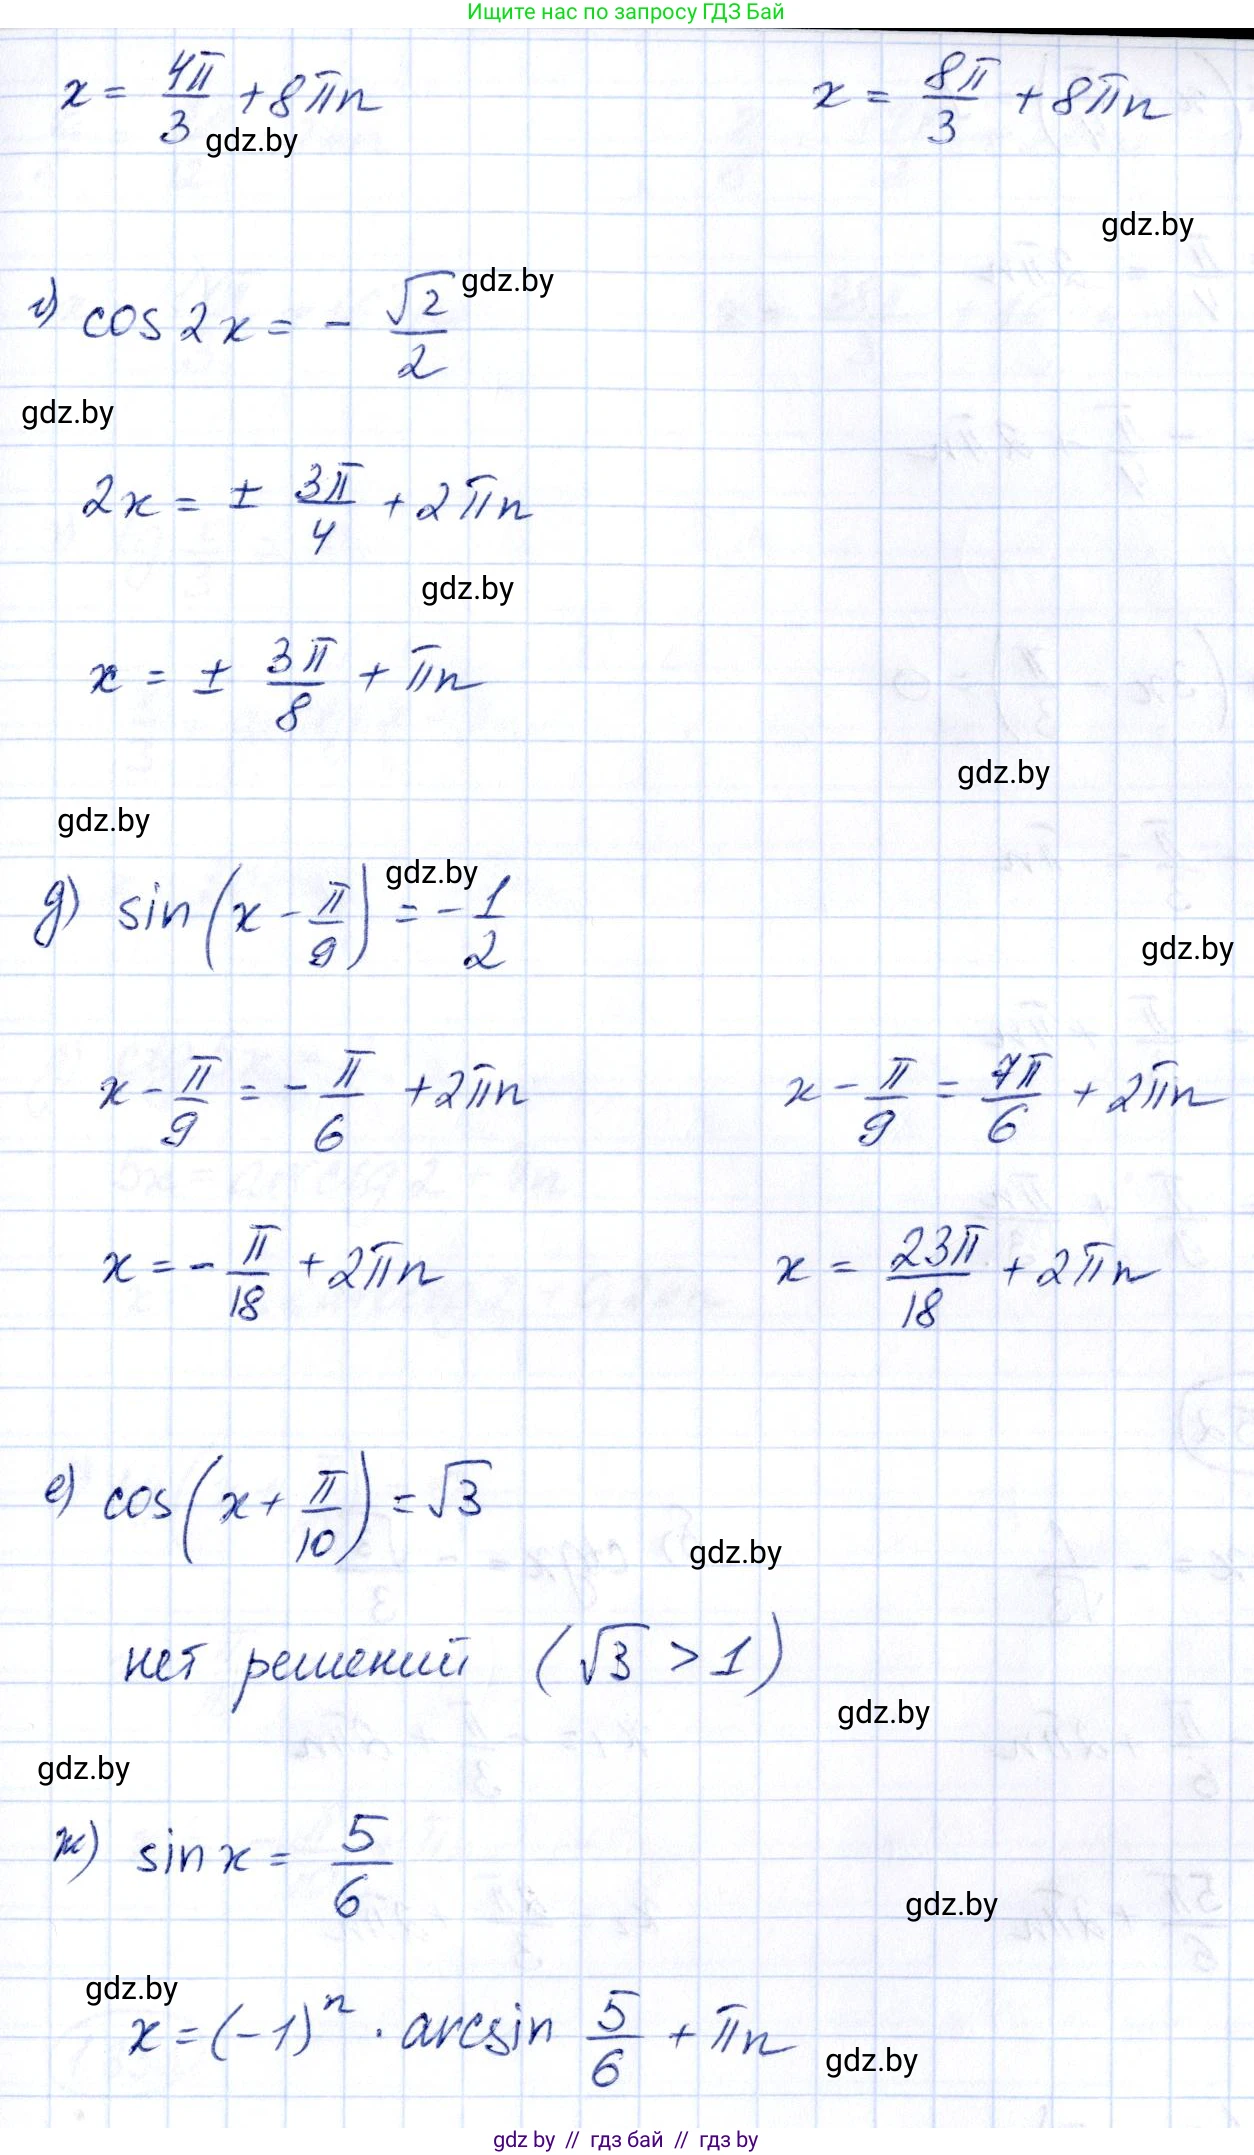 Ищите нас по запросу ГДЗ Бай
x = 4π/3 + 8πn    x = 8π/3 + 8πn
gdz.by
gdz.by
г) cos 2x = - √2/2
gdz.by
gdz.by
2x = ± 3π/4 + 2πn
gdz.by
x = ± 3π/8 + πn
gdz.by
gdz.by
gdz.by
д) sin(x - π/9) = - 1/2
gdz.by
x - π/9 = - π/6 + 2πn    x - π/9 = 7π/6 + 2πn
x = - π/18 + 2πn    x = 23π/18 + 2πn
е) cos(x + π/10) = √3
gdz.by
нет решений (√3 > 1)
gdz.by
gdz.by
ж) sin x = 5/6
gdz.by
gdz.by
x = (-1)ⁿ · arcsin 5/6 + πn
gdz.by
gdz by // гдз бай // гдз by